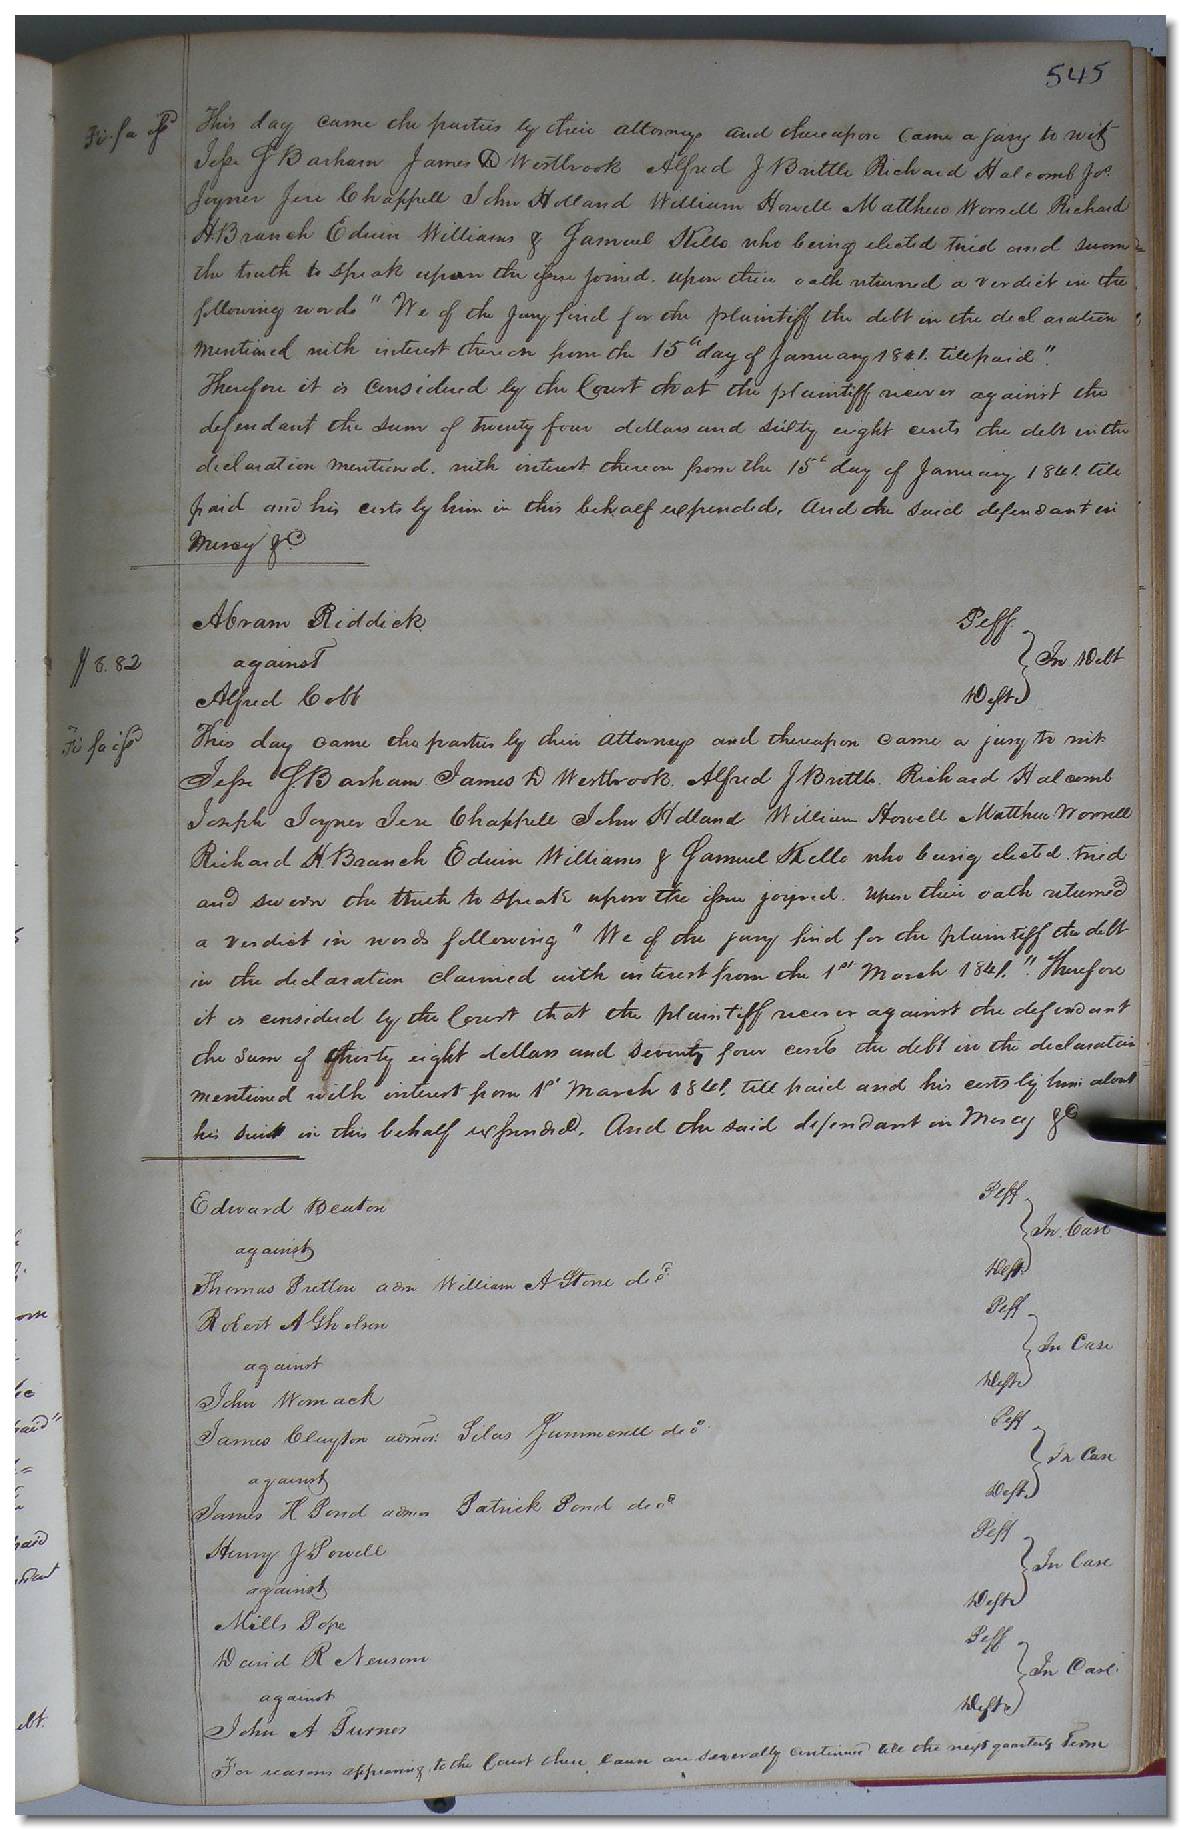 545
Fi fa iss
This day came the parties by their attorneys and thereupon came a jury to wit
Jesse G Barham James D Westbrook Alfred J Brittle Richard Halcomb Jos.
Joyner Jere Chappell John Holland William Howell Matthew Worrell Richard
H Branch Edwin Williams & Samuel Kello who being elected tried and sworn
the truth to speak upon the issue joined. upon their oath returned a verdict in the
following words " We of the jury find for the plaintiff the debt in the declaration
mentioned with interest thereon from the 15th day of January 1841. till paid".
Therefore it is considered by the Court that the plaintiff recover against the
defendant the sum of twenty four dollars and sixty eight cents the debt in the
declaration mentioned. with interest thereon from the 15th day of January 1841. till
paid and his costs by him in this behalf expended. And the said defendant in
Mercy &c
Abram Riddick Plff
8.82 against In Debt
Alfred Cobb Deft
Fi fa iss
This day came the parties by their attorneys and thereupon came a jury to wit
Jesse G. Barham James D Westbrook. Alfred J Brittle. Richard Halcomb
Joseph Joyner Jere Chappell John Holland William Howell Matthew Worrell
Richard H Branch Edwin Williams & Samuel Kello who being elected. tried
and sworn the truth to speak upon the issue joyned. upon their oath returned
a verdict in words following " We of the jury find for the plaintiff the debt
in the declaration claimed with interest from the 1st March 1841." Therefore
it is considered by the Court that the plaintiff recover against the defendant
the sum of thirty eight dollars and seventy four cents the debt in the declaration
mentioned with interest from 1st March 1841. till paid and his costs by him about
his suit in this behalf expended. And the said defendant in Mercy &c
Edward Beaton Plff
against In Case
Thomas Pretlow adm William A Stone decd Deft
Robert A Gholson Plff
against In Case
John Womack Deft
James Clayton admor. Silas Summerell decd Plff
against In Case
James H Pond admor Patrick Pond decd Deft
Henry J Powell Plff
against In Case
Mills Pope Deft
David R Newsom Plff
against In Case
John A Turner Deft
For reasons appearing to the Court these causes are severally continued till the next quarterly Term